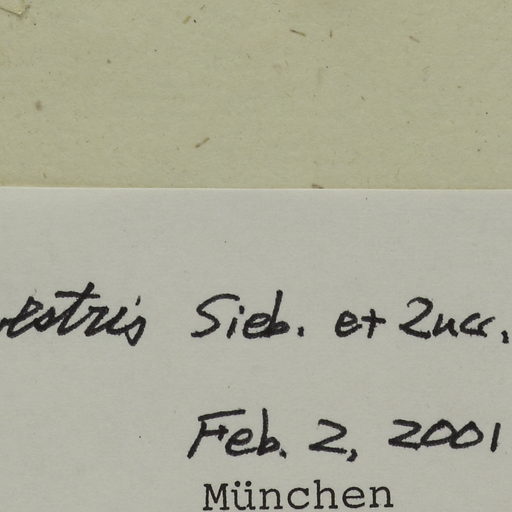 Sieb. et Zucc.
Feb. 2, 2001
München